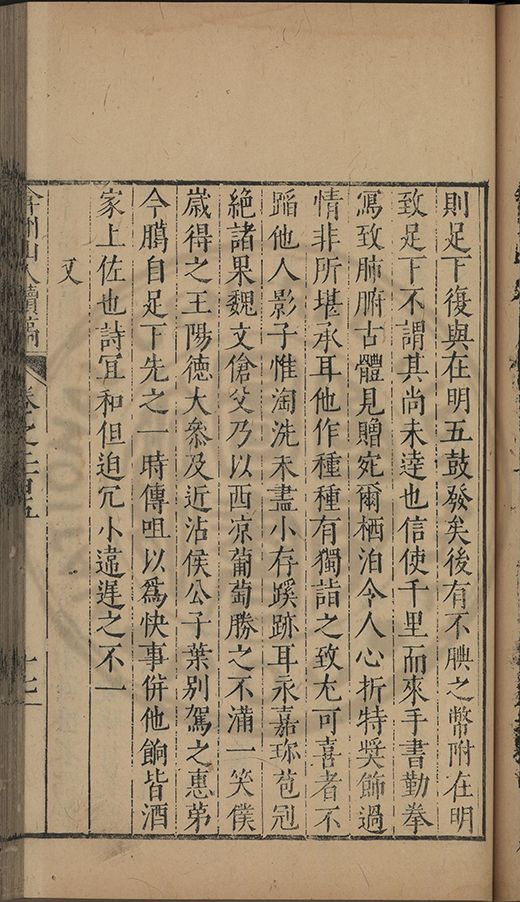 則足下復與在明五鼓發矣後有不腆之幣附在明
致足下不謂其尚未達也信使千里而來手書勤拳
寫致肺腑古體見贈宛爾栖泊令人心折特奬飾過
情非所堪承耳他作種種有獨詣之致尤可喜者不
蹈他人影子惟淘洗未盡小存蹊跡耳永嘉珎苞冠
絶諸果魏文傖父乃以西凉葡萄勝之不滿一笑僕
歲得之王陽德大叅及近沾侯公子葉别駕之惠第
今臈自足下先之一時傳咀以爲快事倂他餉皆酒
家上佐也詩宜和但迫冗小遠遅之不一
又
弇州山人續稿
卷之二百五
十七